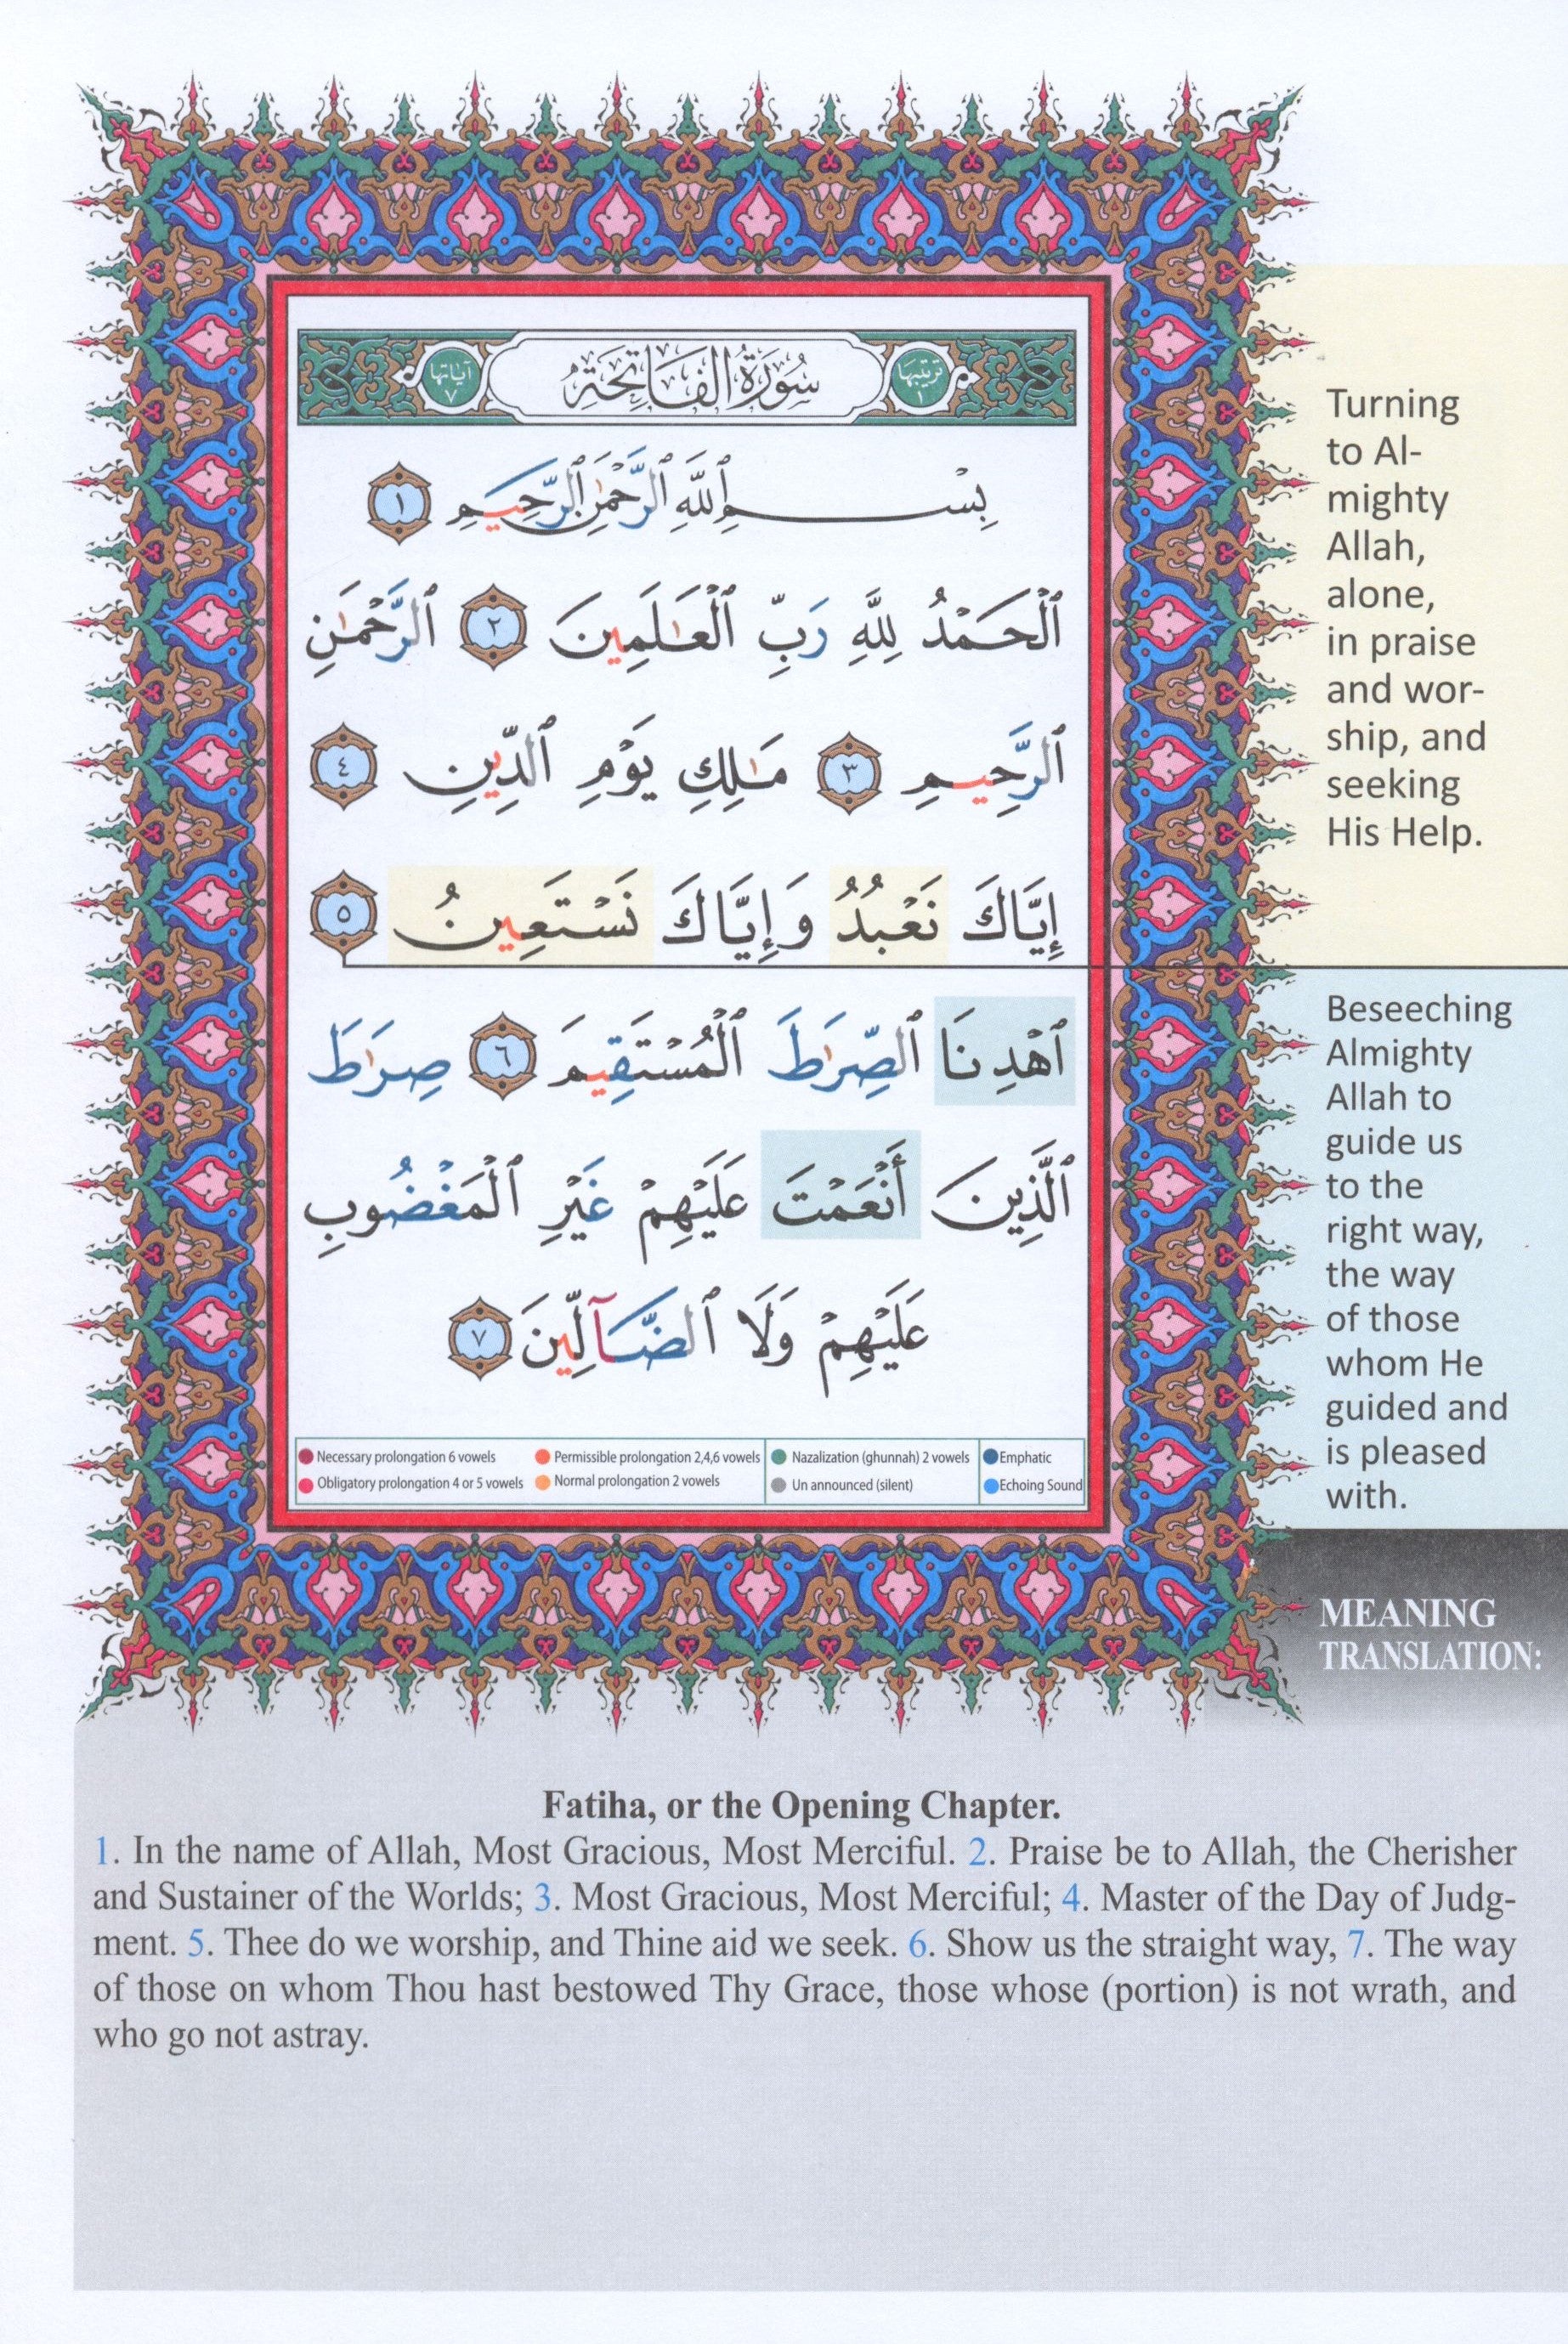 سُورَةُ الفَاتِحَةِ
ترتيبها ١
آياتها ٧
بِسْمِ ٱللَّهِ ٱلرَّحْمَـٰنِ ٱلرَّحِيمِ ١
ٱلْحَمْدُ لِلَّهِ رَبِّ ٱلْعَـٰلَمِينَ ٢ ٱلرَّحْمَـٰنِ
ٱلرَّحِيمِ ٣ مَـٰلِكِ يَوْمِ ٱلدِّينِ ٤
إِيَّاكَ نَعْبُدُ وَإِيَّاكَ نَسْتَعِينُ ٥
ٱهْدِنَا ٱلصِّرَٰطَ ٱلْمُسْتَقِيمَ ٦ صِرَٰطَ
ٱلَّذِينَ أَنْعَمْتَ عَلَيْهِمْ غَيْرِ ٱلْمَغْضُوبِ
عَلَيْهِمْ وَلَا ٱلضَّآلِّينَ ٧
Turning
to Al-
mighty
Allah,
alone,
in praise
and wor-
ship, and
seeking
His Help.
Beseeching
Almighty
Allah to
guide us
to the
right way,
the way
of those
whom He
guided and
is pleased
with.
Necessary prolongation 6 vowels
Obligatory prolongation 4 or 5 vowels
Permissible prolongation 2,4,6 vowels
Normal prolongation 2 vowels
Nazalization (ghunnah) 2 vowels
Un announced (silent)
Emphatic
Echoing Sound
MEANING
TRANSLATION:
Fatiha, or the Opening Chapter.
1. In the name of Allah, Most Gracious, Most Merciful. 2. Praise be to Allah, the Cherisher
and Sustainer of the Worlds; 3. Most Gracious, Most Merciful; 4. Master of the Day of Judg-
ment. 5. Thee do we worship, and Thine aid we seek. 6. Show us the straight way, 7. The way
of those on whom Thou hast bestowed Thy Grace, those whose (portion) is not wrath, and
who go not astray.